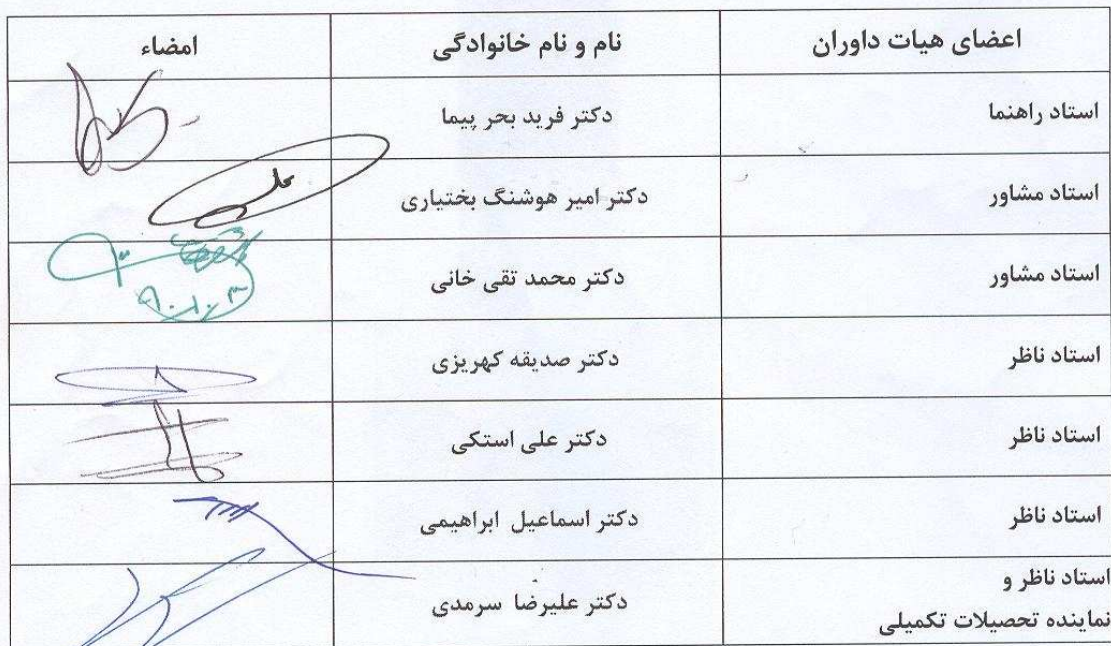 اعضای هیات داوران نام و نام خانوادگی امضاء
استاد راهنما دکتر فرید بحر پیما
استاد مشاور دکتر امیر هوشنگ بختیاری
استاد مشاور دکتر محمد تقی خانی
استاد ناظر دکتر صدیقه کهریزی
استاد ناظر دکتر علی استکی
استاد ناظر دکتر اسماعیل ابراهیمی
استاد ناظر و
نماینده تحصیلات تکمیلی دکتر علیرضا سرمدی